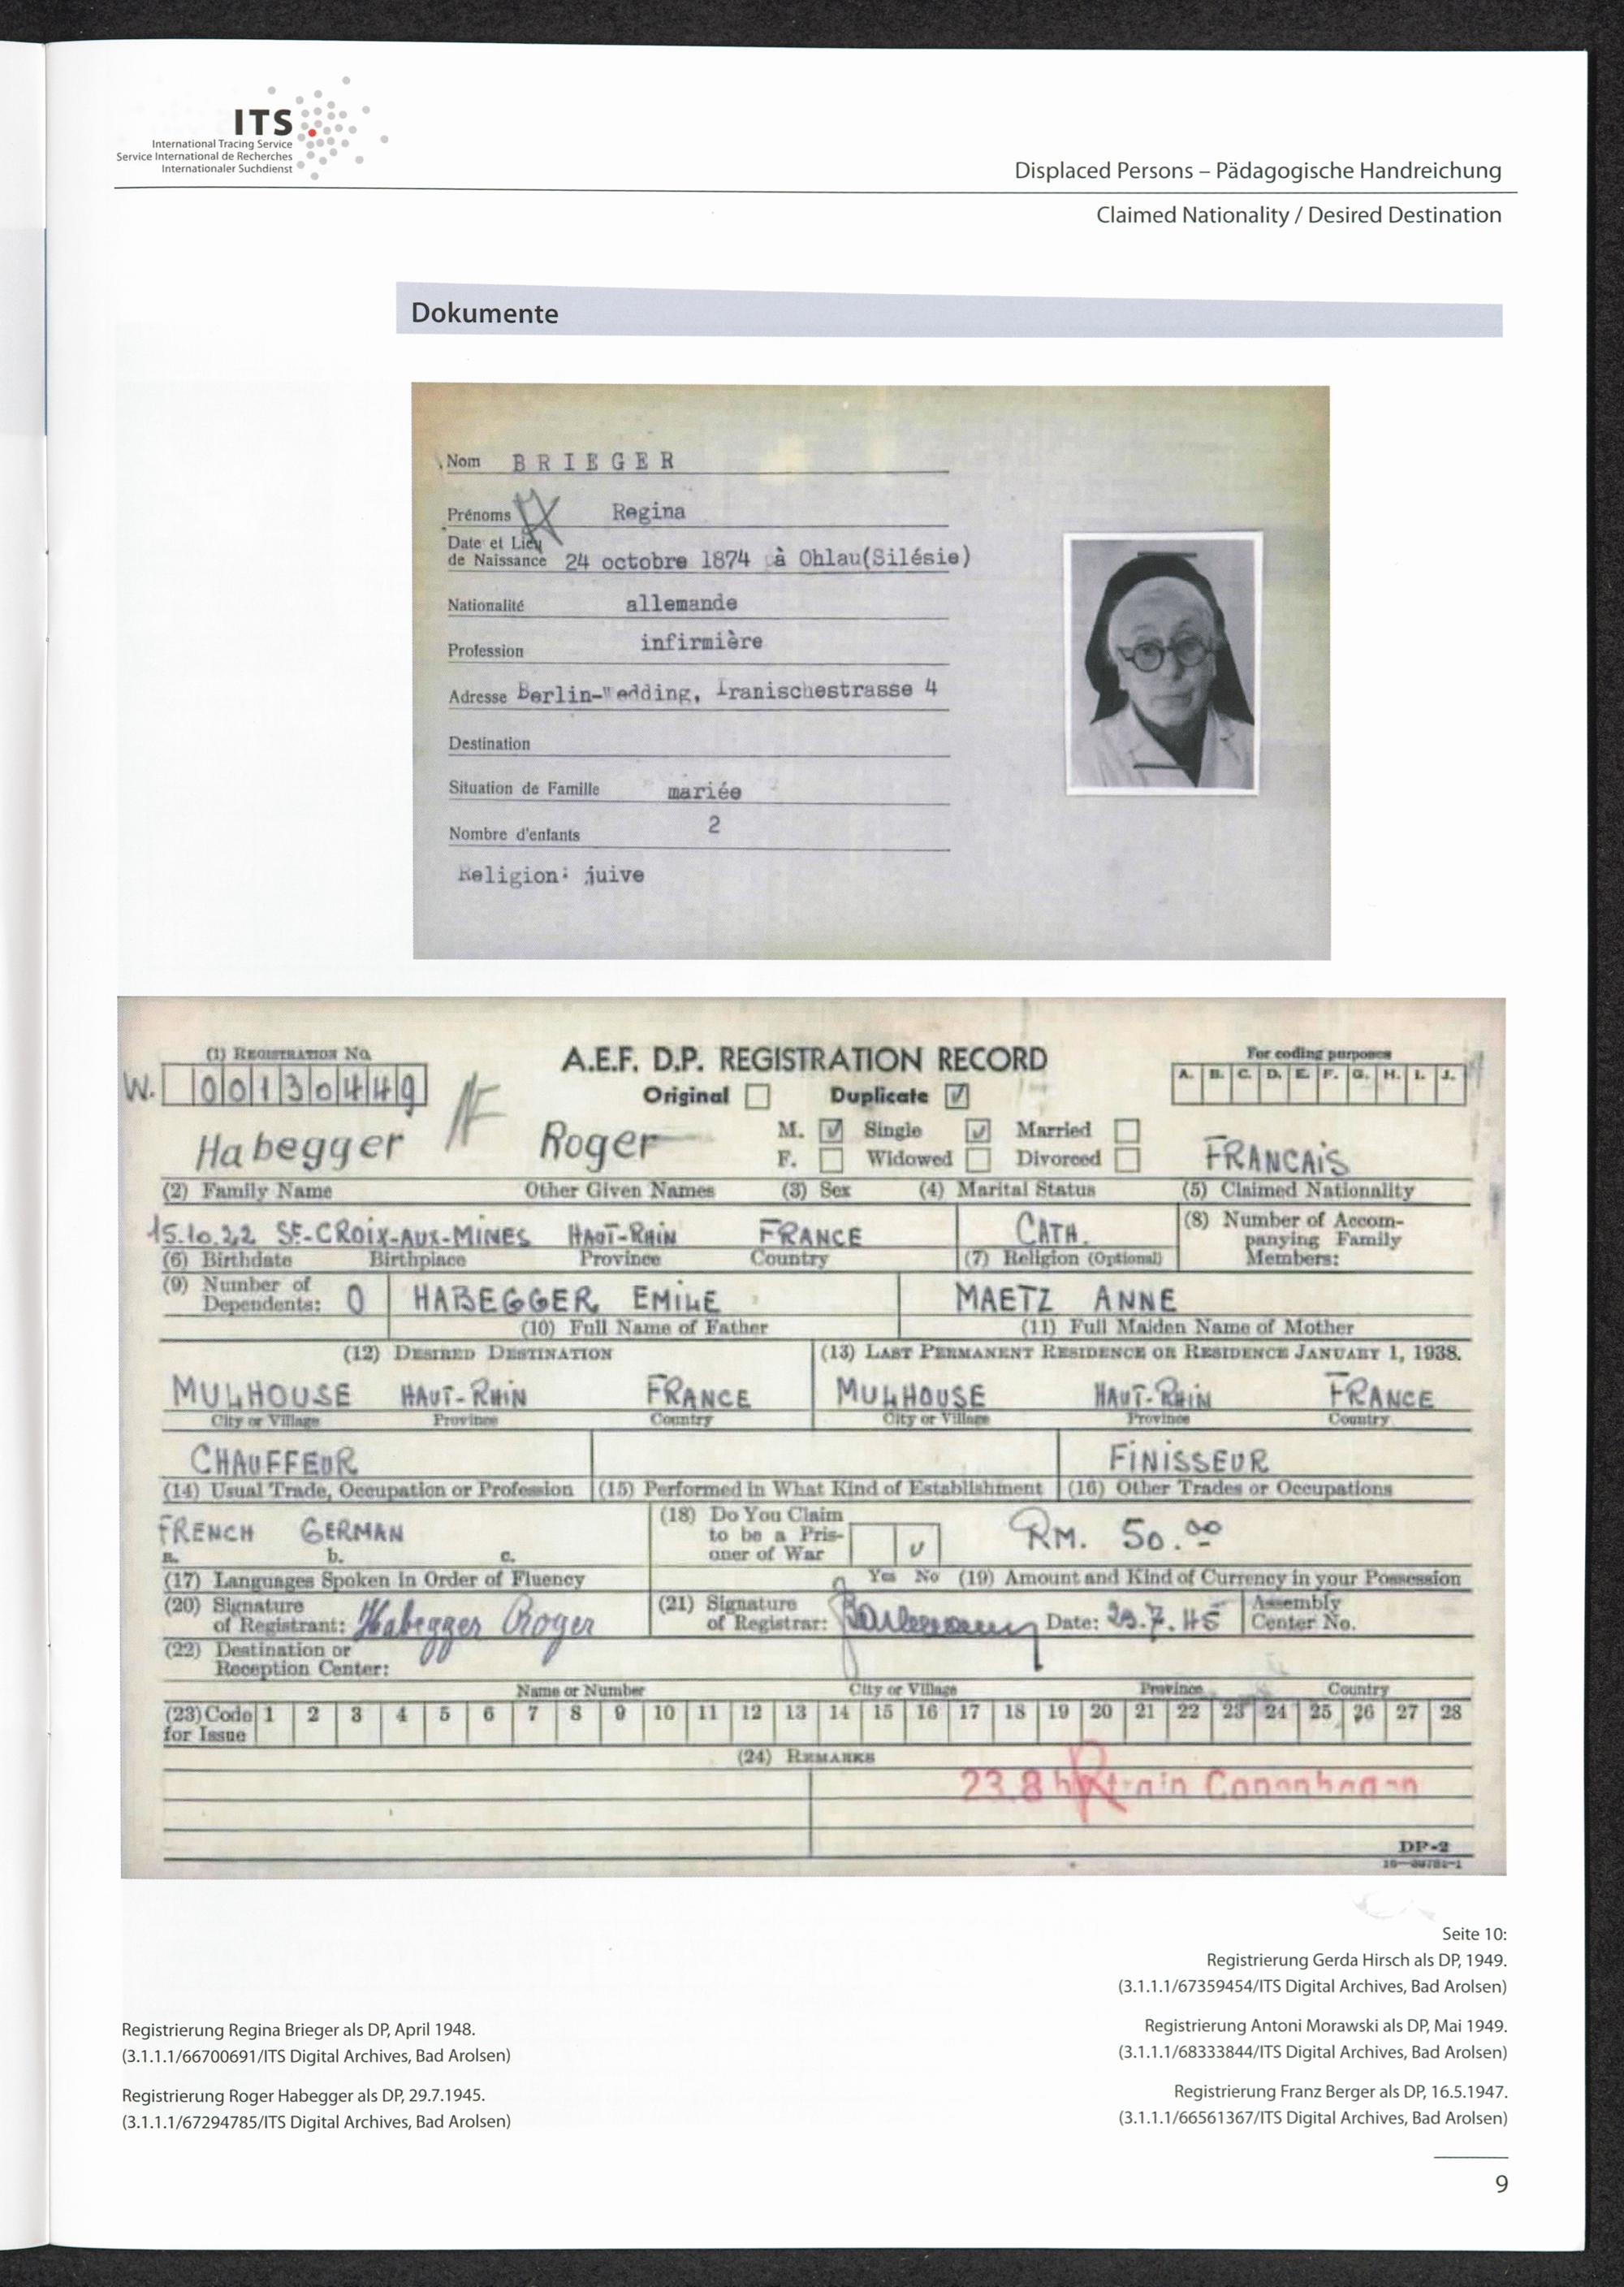 ITS
International Tracing Service
Service International de Recherches
Internationaler Suchdienst
Displaced Persons – Pädagogische Handreichung
Claimed Nationality / Desired Destination
Dokumente
Nom BRIEGER
Prénoms Regina
Date et Lieu
de Naissance 24 octobre 1874 à Ohlau(Silésie)
Nationalité allemande
Profession infirmière
Adresse Berlin-Wedding, Iranischestrasse 4
Destination
Situation de Famille mariée
Nombre d'enfants 2
Religion: juive
(1) REGISTRATION No.
W. 00130449
A.E.F. D.P. REGISTRATION RECORD
Original Duplicate
For coding purposes
A. B. C. D. E. F. G. H. I. J.
Habegger Roger M. Single Married FRANCAIS
F. Widowed Divorced
(2) Family Name Other Given Names (3) Sex (4) Marital Status (5) Claimed Nationality
15.10.22 ST-CROIX-AUX-MINES HAUT-RHIN FRANCE CATH. (8) Number of Accom-
panying Family
Members:
(6) Birthdate Birthplace Province Country (7) Religion (Optional)
(9) Number of
Dependents: 0 HABEGGER EMILE MAETZ ANNE
(10) Full Name of Father (11) Full Maiden Name of Mother
(12) DESIRED DESTINATION (13) LAST PERMANENT RESIDENCE OR RESIDENCE JANUARY 1, 1938.
MULHOUSE HAUT-RHIN FRANCE MULHOUSE HAUT-RHIN FRANCE
City or Village Province Country City or Village Province Country
CHAUFFEUR FINISSEUR
(14) Usual Trade, Occupation or Profession (15) Performed in What Kind of Establishment (16) Other Trades or Occupations
FRENCH GERMAN (18) Do You Claim
to be a Pris-
oner of War RM. 50.00
a. b. c.
Yes No
(17) Languages Spoken in Order of Fluency (19) Amount and Kind of Currency in your Possession
(20) Signature
of Registrant: Habegger Roger (21) Signature
of Registrar: Date: 29.7.45 Assembly
Center No.
(22) Destination or
Reception Center:
Name or Number City or Village Province Country
(23) Code
for Issue 1 2 3 4 5 6 7 8 9 10 11 12 13 14 15 16 17 18 19 20 21 22 23 24 25 26 27 28
(24) REMARKS
23.8
DP-2
Seite 10:
Registrierung Gerda Hirsch als DP, 1949.
(3.1.1.1/67359454/ITS Digital Archives, Bad Arolsen)
Registrierung Regina Brieger als DP, April 1948.
(3.1.1.1/66700691/ITS Digital Archives, Bad Arolsen)
Registrierung Antoni Morawski als DP, Mai 1949.
(3.1.1.1/68333844/ITS Digital Archives, Bad Arolsen)
Registrierung Roger Habegger als DP, 29.7.1945.
(3.1.1.1/67294785/ITS Digital Archives, Bad Arolsen)
Registrierung Franz Berger als DP, 16.5.1947.
(3.1.1.1/66561367/ITS Digital Archives, Bad Arolsen)
9